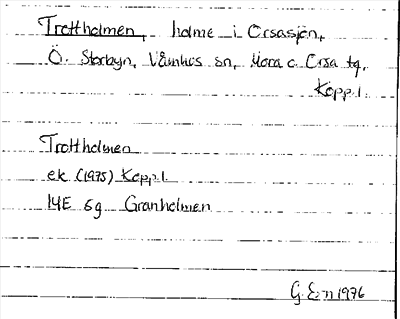 Trottholmen, holme i Orsasjön,
Ö. Storbyn, Våmhus sn, Mora o. Orsa tg,
Kopp.l.
Trottholmen
ek (1975) Kopp.l.
14E 5g Granholmen
G. E-n 1976